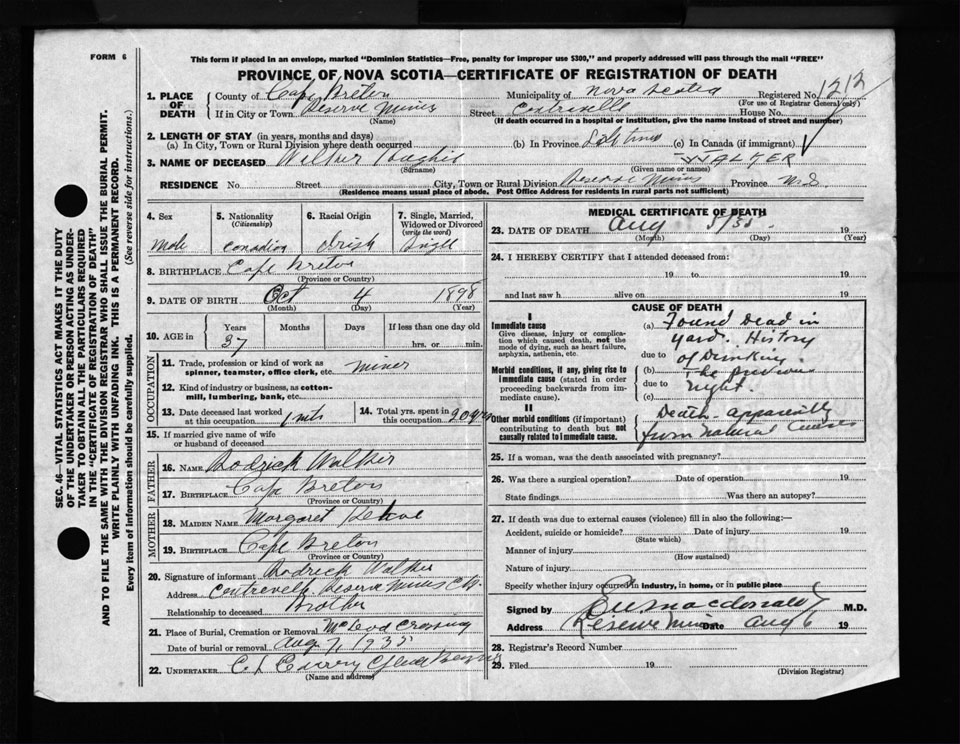 FORM 6
This form if placed in an envelope, marked "Dominion Statistics—Free, penalty for improper use $300," and properly addressed will pass through the mail "FREE"
PROVINCE OF NOVA SCOTIA—CERTIFICATE OF REGISTRATION OF DEATH
1. PLACE OF DEATH
County of Cape Breton Municipality of Nova Scotia Registered No. 1213
(For use of Registrar General only)
If in City or Town Reserve Mines Street Centreville House No.
(Name) (If death occurred in a hospital or institution, give the name instead of street and number)
2. LENGTH OF STAY (in years, months and days)
(a) In City, Town or Rural Division where death occurred (b) In Province Life time (c) In Canada (if immigrant)
3. NAME OF DECEASED Walker Hughie WALKER
(Surname) (Given name or names)
RESIDENCE No. Street City, Town or Rural Division Reserve Mines Province N.S.
(Residence means usual place of abode. Post Office Address for residents in rural parts not sufficient)
4. Sex 5. Nationality (Citizenship) 6. Racial Origin 7. Single, Married, Widowed or Divorced (write the word)
Male Canadian Irish Single
8. BIRTHPLACE Cape Breton
(Province or Country)
9. DATE OF BIRTH Oct 4 1898
(Month) (Day) (Year)
10. AGE in Years Months Days If less than one day old
37 hrs. or min.
OCCUPATION
11. Trade, profession or kind of work as spinner, teamster, office clerk, etc. miner
12. Kind of industry or business, as cotton-mill, lumbering, bank, etc.
13. Date deceased last worked at this occupation 14. Total yrs. spent in this occupation 20
15. If married give name of wife or husband of deceased
FATHER
16. NAME Rodrick Walker
17. BIRTHPLACE Cape Breton
(Province or Country)
MOTHER
18. MAIDEN NAME Margaret
19. BIRTHPLACE Cape Breton
(Province or Country)
20. Signature of informant Rodrick Walker
Address Centreville Reserve Mines C.B.
Relationship to deceased Brother
21. Place of Burial, Cremation or Removal McLeod Crossing
Date of burial or removal Aug 7, 1935
22. UNDERTAKER Curry Glace Bay
(Name and address)
MEDICAL CERTIFICATE OF DEATH
23. DATE OF DEATH Aug 5/35 19
(Month) (Day) (Year)
24. I HEREBY CERTIFY that I attended deceased from:
19 to 19
and last saw h alive on 19
CAUSE OF DEATH
I
Immediate cause
Give disease, injury or complication which caused death, not the mode of dying, such as heart failure, asphyxia, asthenia, etc.
Morbid conditions, if any, giving rise to immediate cause (stated in order proceeding backwards from immediate cause).
II
Other morbid conditions (if important) contributing to death but not causally related to immediate cause.
(a) Found Dead in
yard. History
due to of Drinking
(b) The previous
due to night.
(c)
Death apparently
from natural Causes
25. If a woman, was the death associated with pregnancy?
26. Was there a surgical operation? Date of operation 19
State findings Was there an autopsy?
27. If death was due to external causes (violence) fill in also the following:—
Accident, suicide or homicide? Date of injury 19
(State which)
Manner of injury
(How sustained)
Nature of injury
Specify whether injury occurred in industry, in home, or in public place
Signed by MacDonald M.D.
Address Reserve Mines Date Aug 6 19
28. Registrar's Record Number
29. Filed 19
(Division Registrar)
SEC. 46—VITAL STATISTICS ACT MAKES IT THE DUTY
OF THE UNDERTAKER OR PERSON ACTING AS UNDER-
TAKER TO OBTAIN ALL THE PARTICULARS REQUIRED
IN THE "CERTIFICATE OF REGISTRATION OF DEATH"
AND TO FILE THE SAME WITH THE DIVISION REGISTRAR WHO SHALL ISSUE THE BURIAL PERMIT.
WRITE PLAINLY WITH UNFADING INK. THIS IS A PERMANENT RECORD.
Every item of information should be carefully supplied. (See reverse side for instructions.)